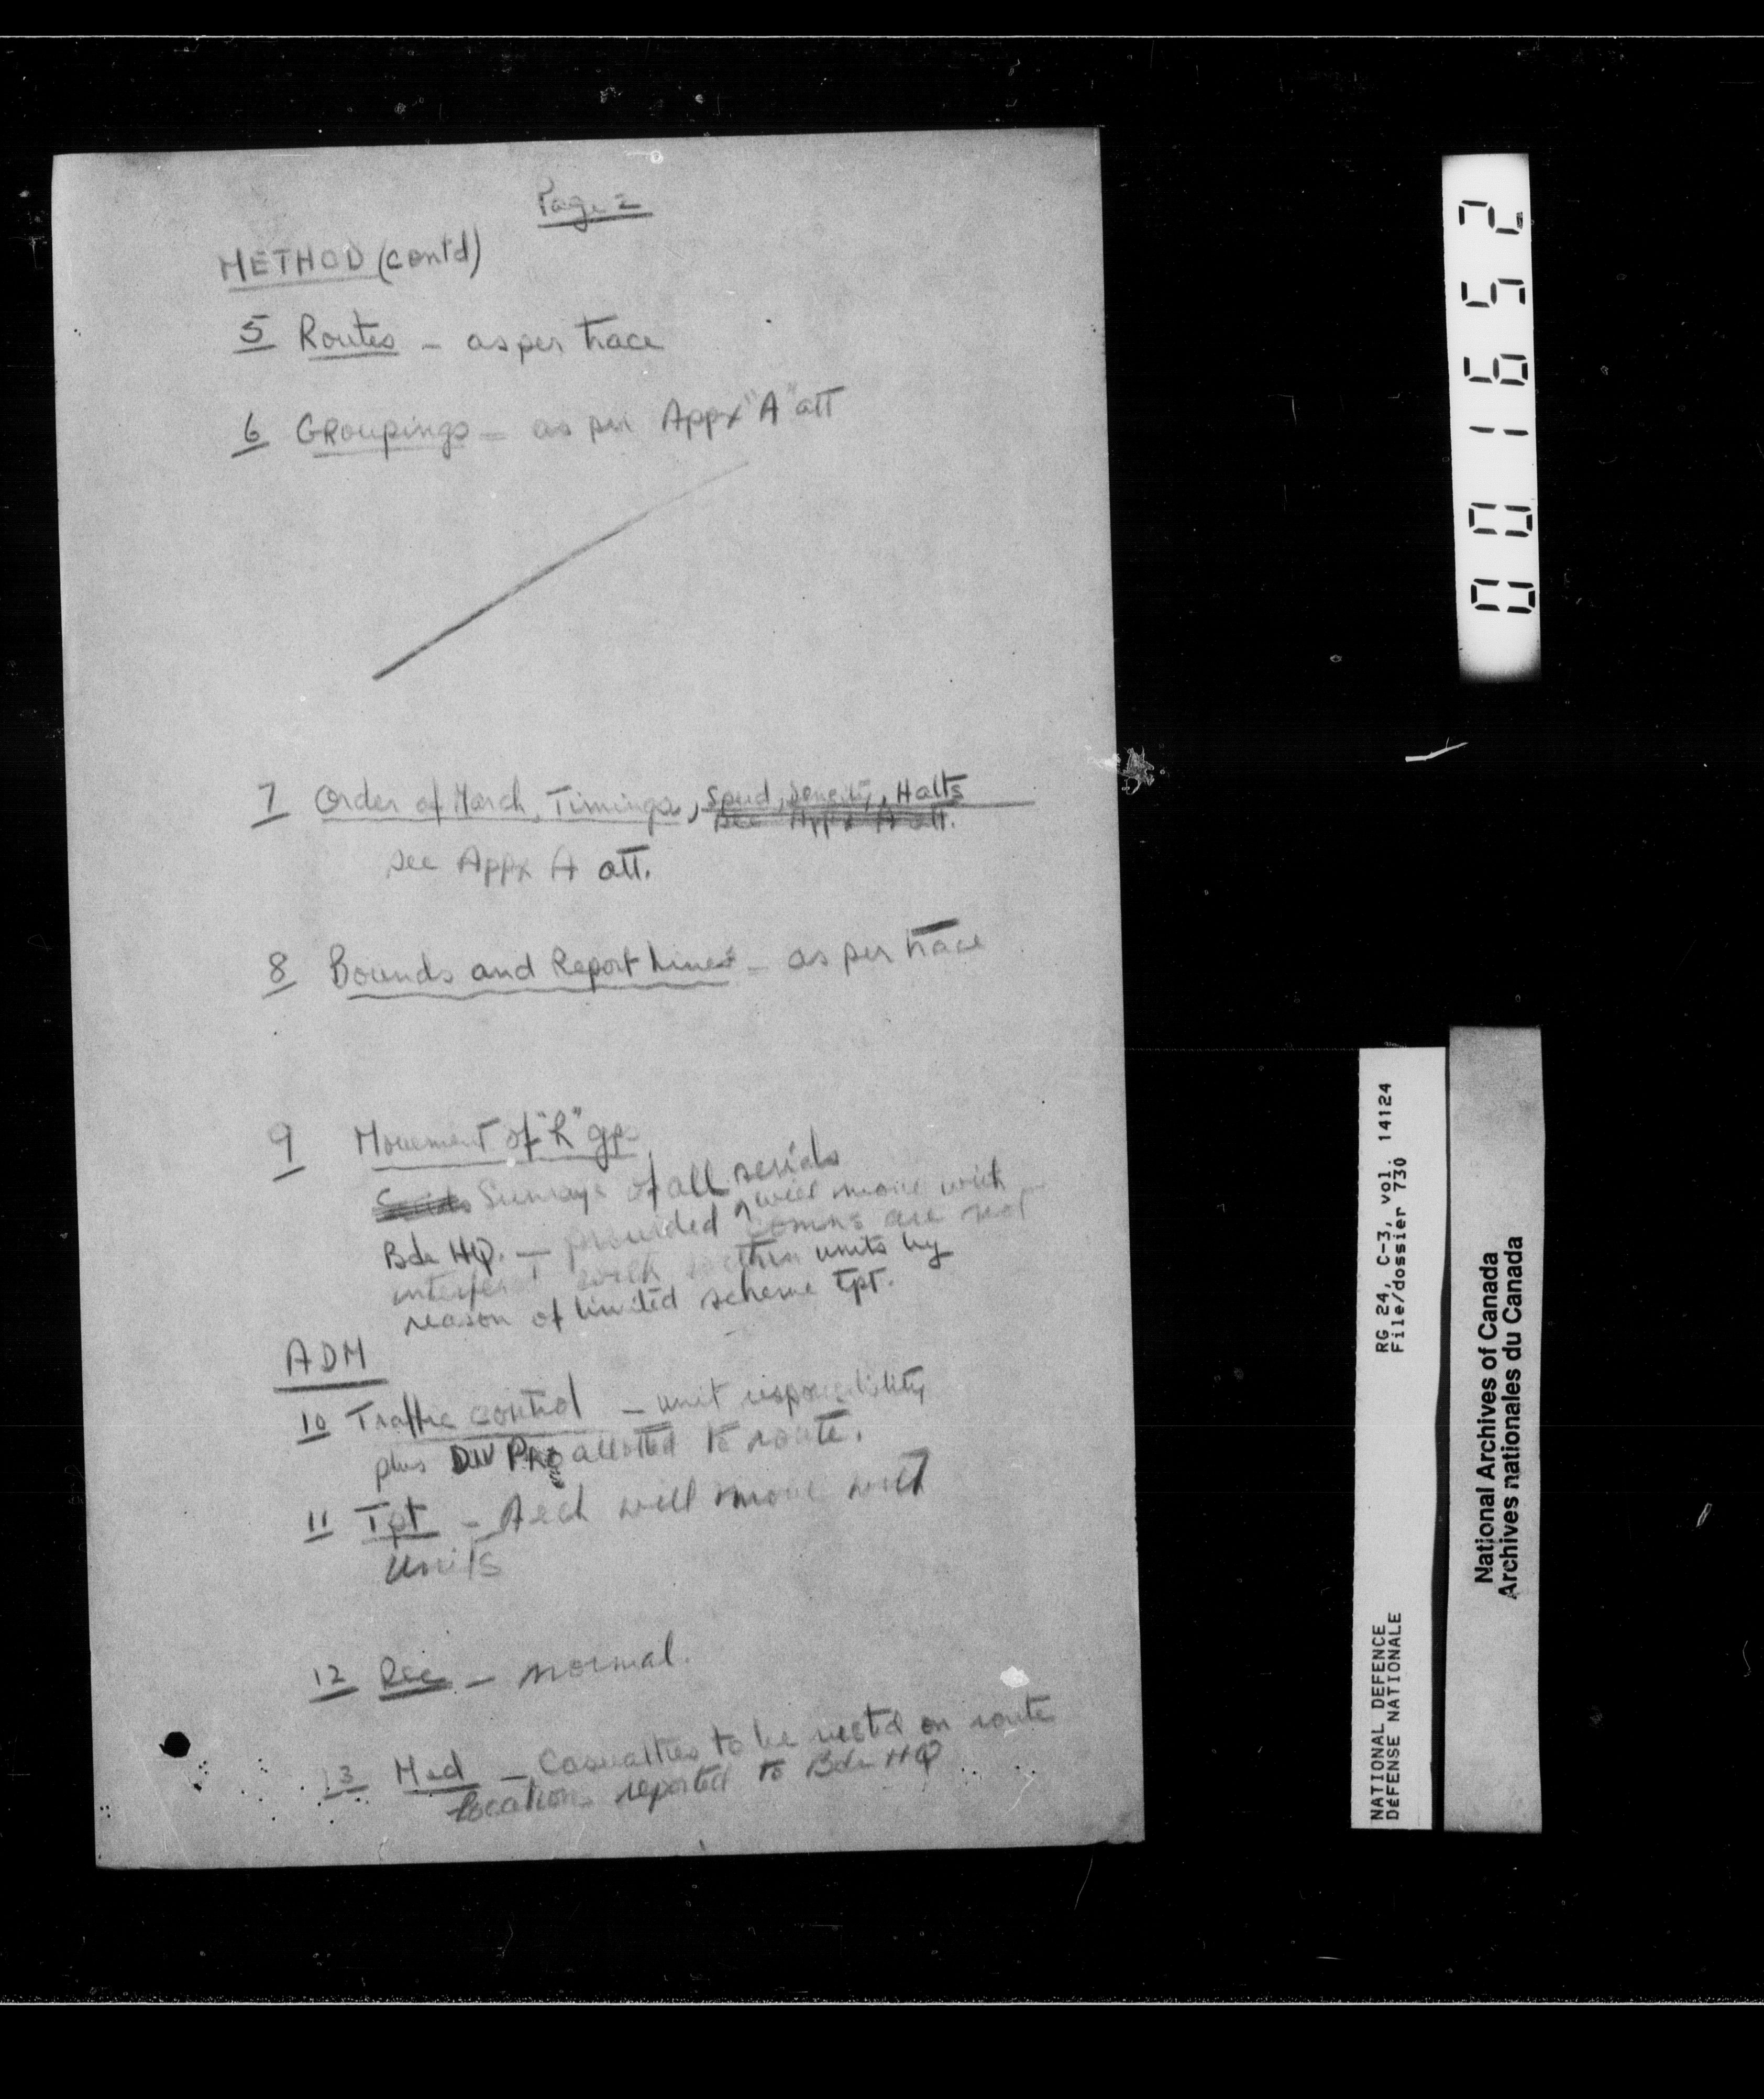 Page 2
METHOD (contd)
5 Routes – as per trace
6 Groupings – as per Appx "A" att
7 Order of March, Timings, Speed, Density, Halts
see Appx A att.
see Appx A att.
8 Bounds and Report Lines – as per trace
9 Movement of "R" gps
Sunrays of all serials
will move with
Bde HQ. – provided comns are not
with within units by
reason of limited scheme tpt.
ADM
10 Traffic control – unit responsibility
plus Div Pro allotted to route.
11 Tpt – A ech will move with
Units
12 Rec – normal.
13 Med – Casualties to be on route
locations reported to Bde HQ
001652
RG 24, C-3, vol. 14124
File/dossier 730
NATIONAL DEFENCE
DÉFENSE NATIONALE
National Archives of Canada
Archives nationales du Canada